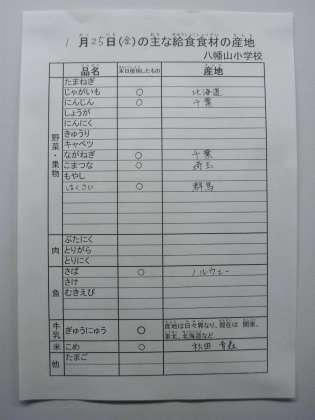 1月25日(金)の主な給食食材の産地
八幡山小学校
品名 本日使用したもの 産地
野菜・果物
たまねぎ
じゃがいも ○ 北海道
にんじん ○ 千葉
しょうが
にんにく
きゅうり
キャベツ
ながねぎ ○ 千葉
こまつな ○ 埼玉
もやし
はくさい ○ 群馬
肉
ぶたにく
とりがら
とりにく
魚
さば ○ ノルウェー
さけ
むきえび
牛乳
ぎゅうにゅう ○ 産地は日々異なり、現在は 関東、
東北、北海道など
米 こめ ○ 秋田 青森
他 たまご